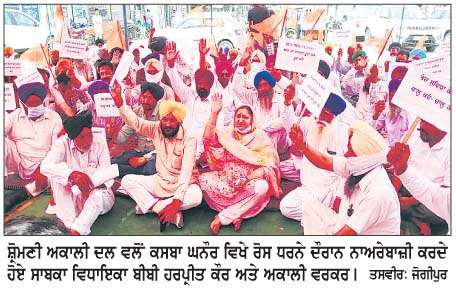 ਸ਼੍ਰੋਮਣੀ ਅਕਾਲੀ ਦਲ ਵਲੋਂ ਕਸਬਾ ਘਨੌਰ ਵਿਖੇ ਰੋਸ ਧਰਨੇ ਦੌਰਾਨ ਨਾਅਰੇਬਾਜ਼ੀ ਕਰਦੇ
ਹੋਏ ਸਾਬਕਾ ਵਿਧਾਇਕਾ ਬੀਬੀ ਹਰਪ੍ਰੀਤ ਕੌਰ ਅਤੇ ਅਕਾਲੀ ਵਰਕਰ। ਤਸਵੀਰ: ਜੋਗੀਪੁਰ